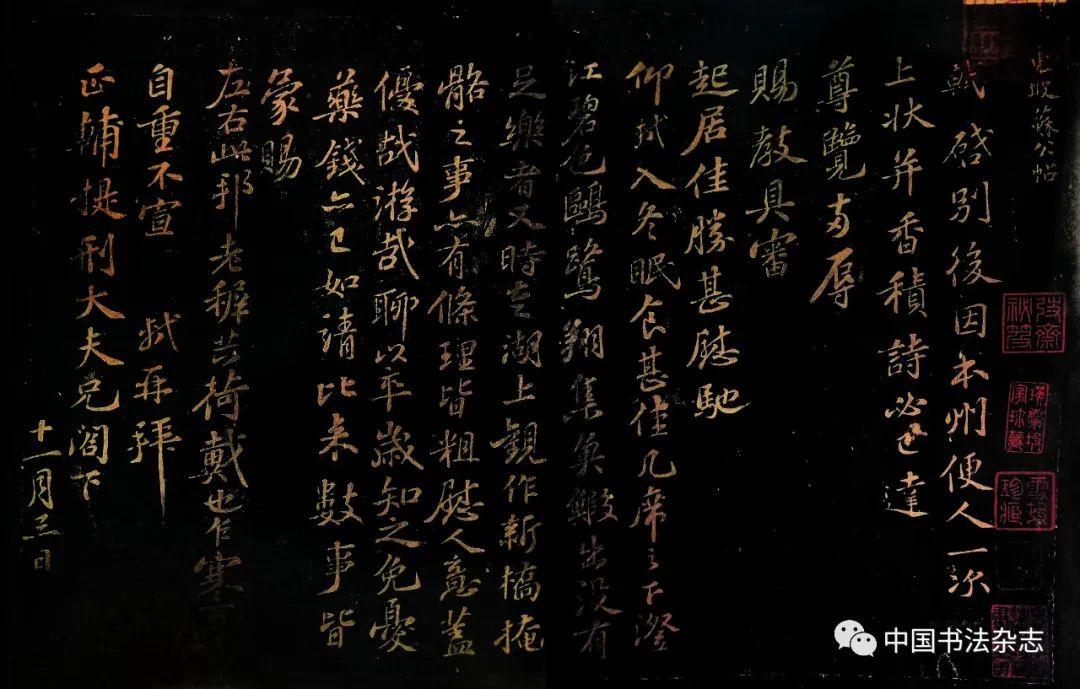 東坡蘇公帖
軾啓別後因本州便人一次
上狀并香積詩必已達
尊覽專辱
賜教具審
起居佳勝甚慰馳
仰軾入冬眠食甚佳几席之下澄
江碧色鷗鷺翔集魚鰕出没有
足樂者又時走湖上觀作新橋掩
骼之事亦有條理皆粗慰人意蓋
優哉游哉聊以卒歲知之免憂
藥錢亦已如請比来數事皆
蒙賜
左右此邦老稺共荷戴也乍寒
自重不宣 軾再拜
正輔提刑大夫兄閣下
十一月三日
中国书法杂志